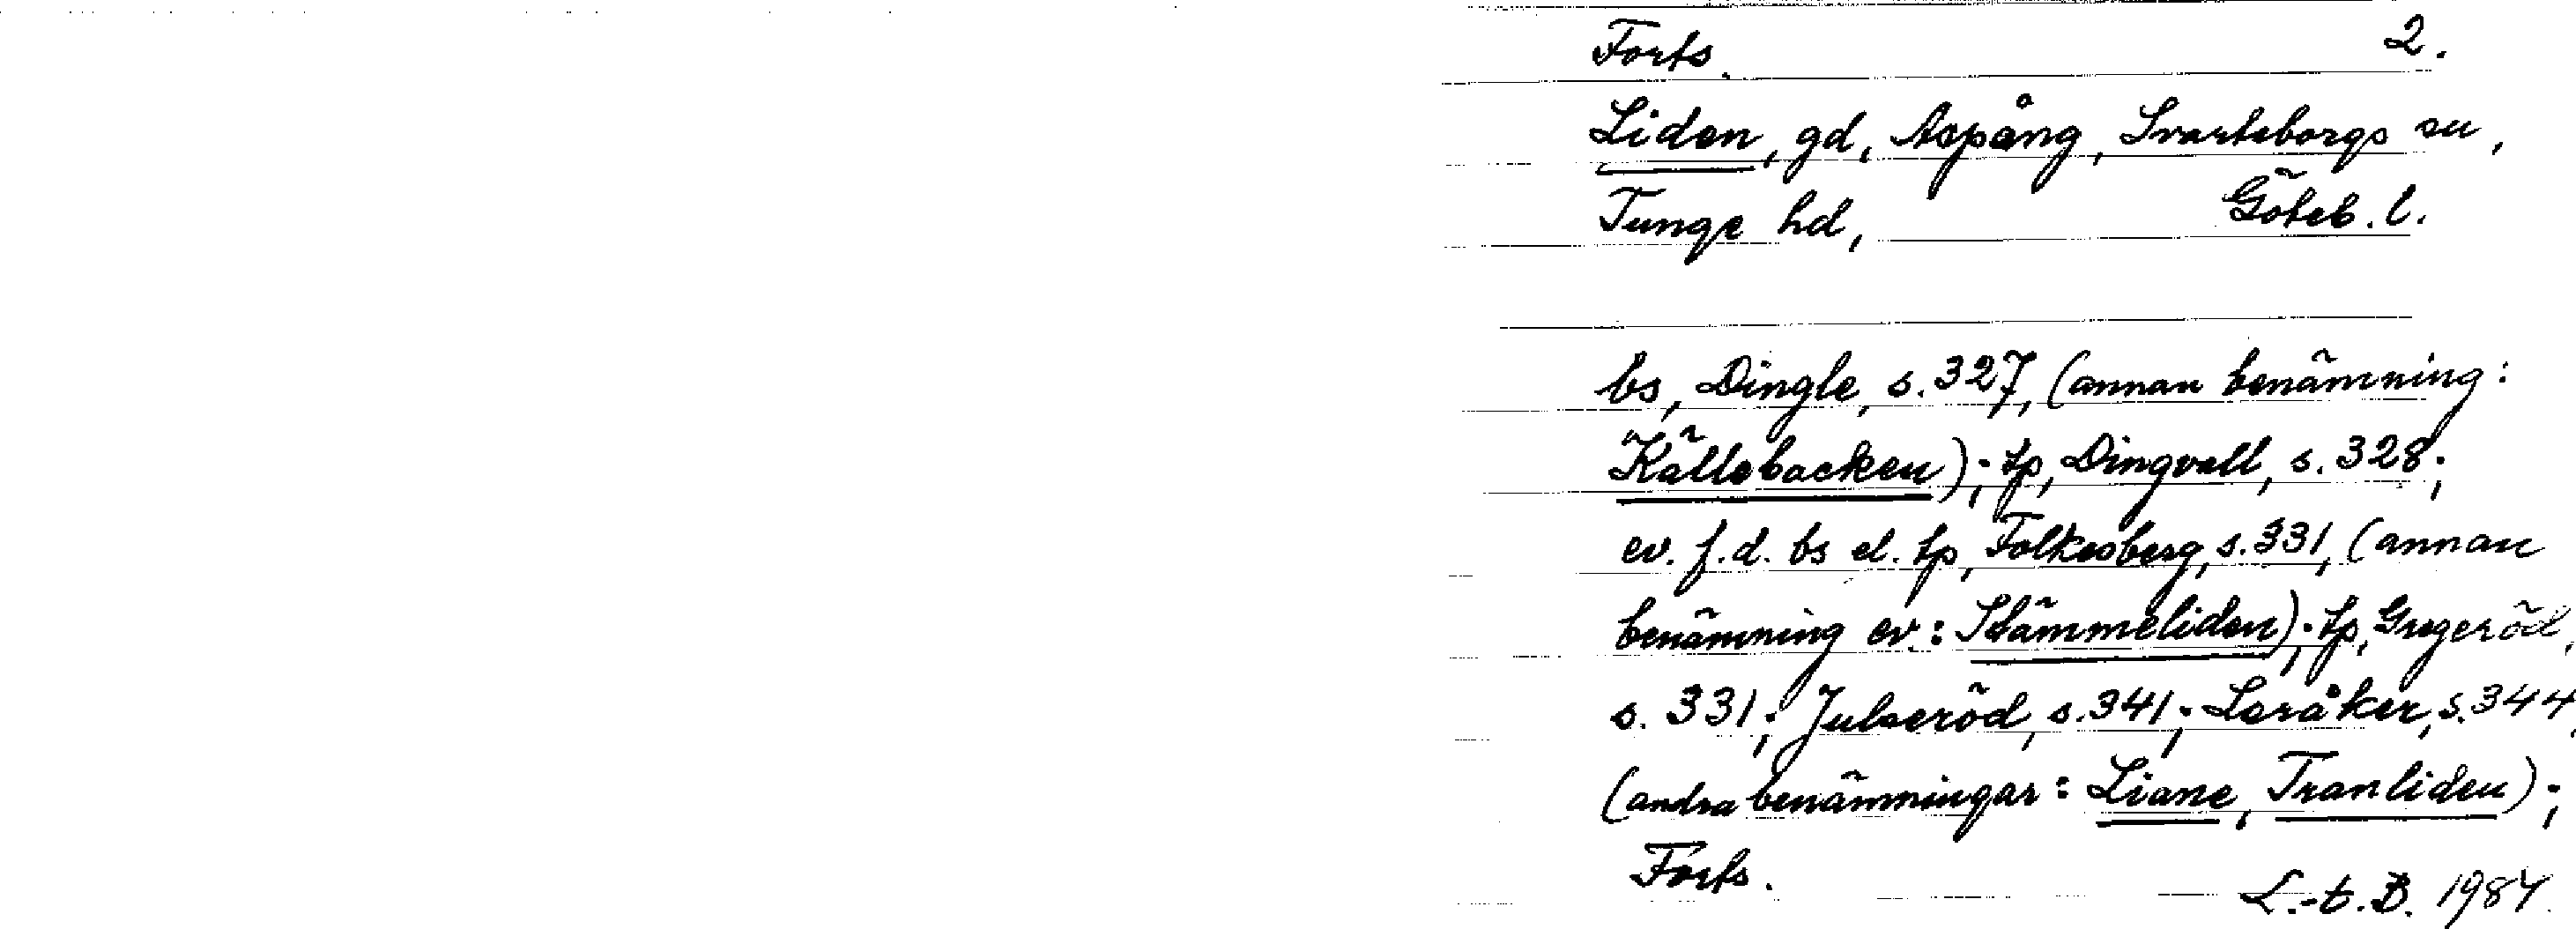 Forts. 2.
Liden, gd, Aspång, Svarteborgs sn,
Tunge hd, Göteb. l.
bs, Dingle, s. 327, (annan benämning:
Källebacken); tp, Dingvall, s. 328;
ev. f.d. bs el. tp, Folkesberg, s. 331, (annan
benämning ev.: Stämmeliden); tp, Gregeröd,
s. 331; Julseröd, s. 341; Leråker, s. 344,
(andra benämningar: Liane, Tranliden);
Forts. L.-t. B. 1984.